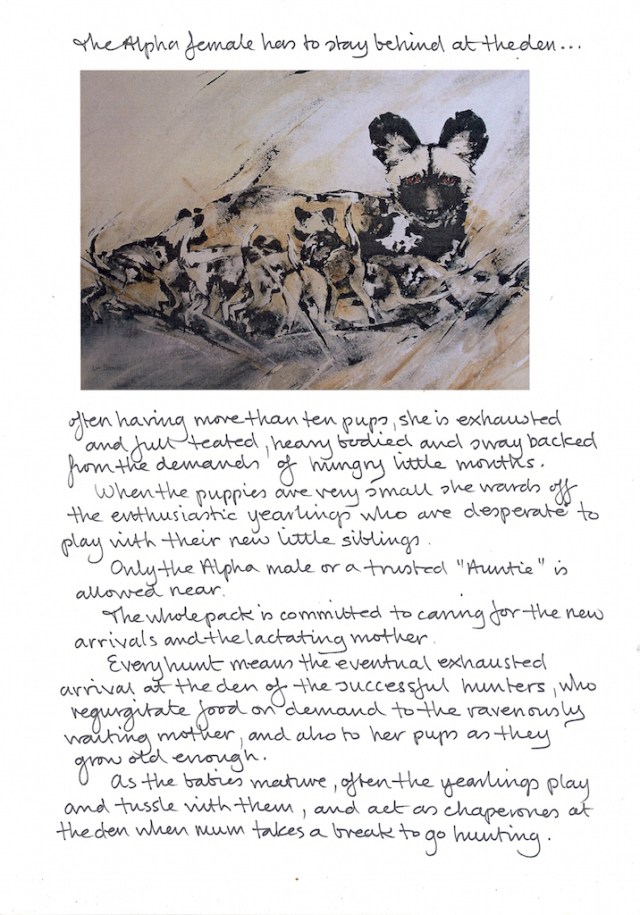 The Alpha female has to stay behind at the den...
often having more than ten pups, she is exhausted
and full teated, heavy bodied and sway backed
from the demands of hungry little mouths.
When the puppies are very small she wards off
the enthusiastic yearlings who are desperate to
play with their new little siblings.
Only the Alpha male or a trusted "Auntie" is
allowed near.
The whole pack is committed to caring for the new
arrivals and the lactating mother.
Every hunt means the eventual exhausted
arrival at the den of the successful hunters, who
regurgitate food on demand to the ravenously
waiting mother, and also to her pups as they
grow old enough.
As the babies mature, often the yearlings play
and tussle with them, and act as chaperones at
the den when mum takes a break to go hunting.